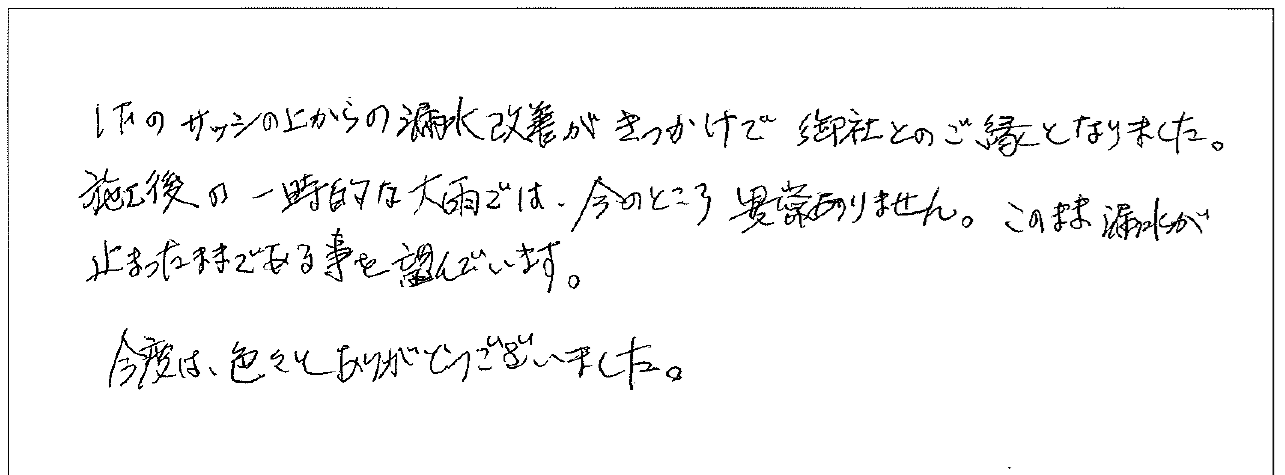 1Fのサッシの上からの漏水改善がきっかけで御社とのご縁となりました。
施工後の一時的な大雨では、今のところ異常ありません。このまま漏水が
止まったままである事を望んでいます。
今度は、色々とありがとうございました。